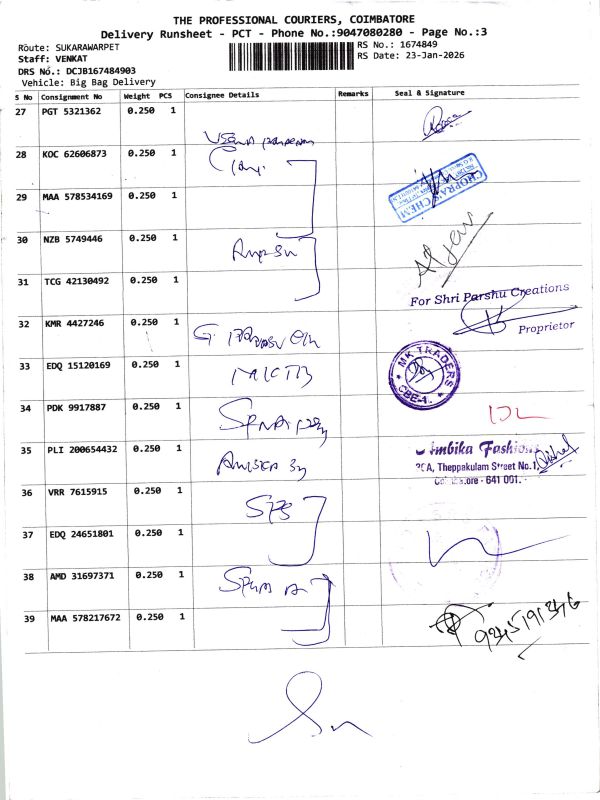 THE PROFESSIONAL COURIERS, COIMBATORE
Delivery Runsheet - PCT - Phone No.:9047080280 - Page No.:3
Route: SUKARAWARPET
RS No.: 1674849
Staff: VENKAT
RS Date: 23-Jan-2026
DRS No.: DCJB167484903
Vehicle: Big Bag Delivery
S No Consignment No Weight PCS Consignee Details Remarks Seal & Signature
27 PGT 5321362 0.250 1
28 KOC 62606873 0.250 1
CHOPRA'S CHEM
29 MAA 578534169 0.250 1
30 NZB 5749446 0.250 1
31 TCG 42130492 0.250 1
For Shri Parshu Creations
Proprietor
32 KMR 4427246 0.250 1
33 EDQ 15120169 0.250 1
MK TRADERS
CBE-1.
34 PDK 9917887 0.250 1
35 PLI 200654432 0.250 1
Ambika Fashions
Theppakulam Street No.1,
641 001.
36 VRR 7615915 0.250 1
SPS
37 EDQ 24651801 0.250 1
38 AMD 31697371 0.250 1
39 MAA 578217672 0.250 1